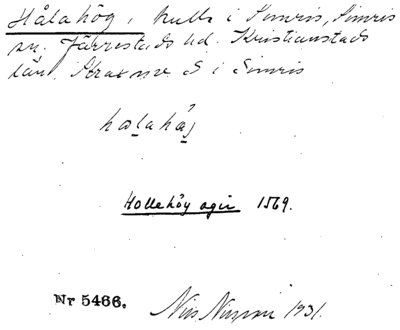 Hålahög, kulle i Simris, Simris
sn. Järrestads hd. Kristianstads
län. Strax nv S i Simris
halahög
Hollehöy agir 1569.
Nr 5466. Nils Nilsson 1931.